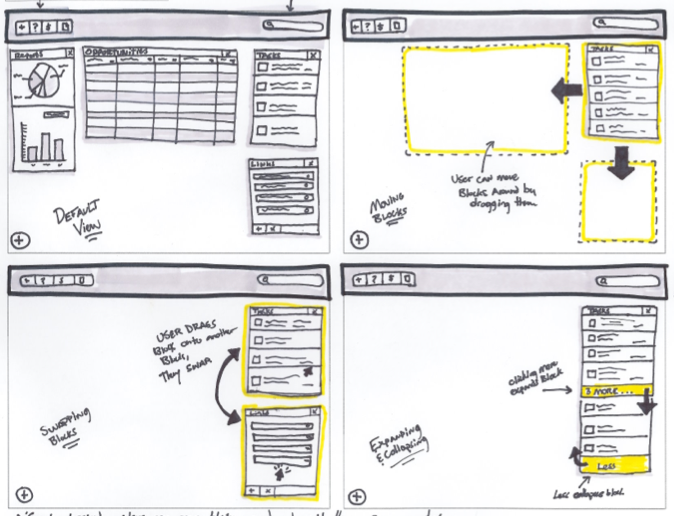 REPORTS
OPPORTUNITIES
TASKS
LINKS
DEFAULT
VIEW
TASKS
User can move
Blocks around by
dragging them.
MOVING
BLOCKS
TASKS
USER DRAGS
Block onto another
Block,
They SWAP
LINKS
SWAPPING
Blocks
TASKS
clicking more
expands Block
3 MORE ...
EXPANDING
& Collapsing
Less
Less collapses block.